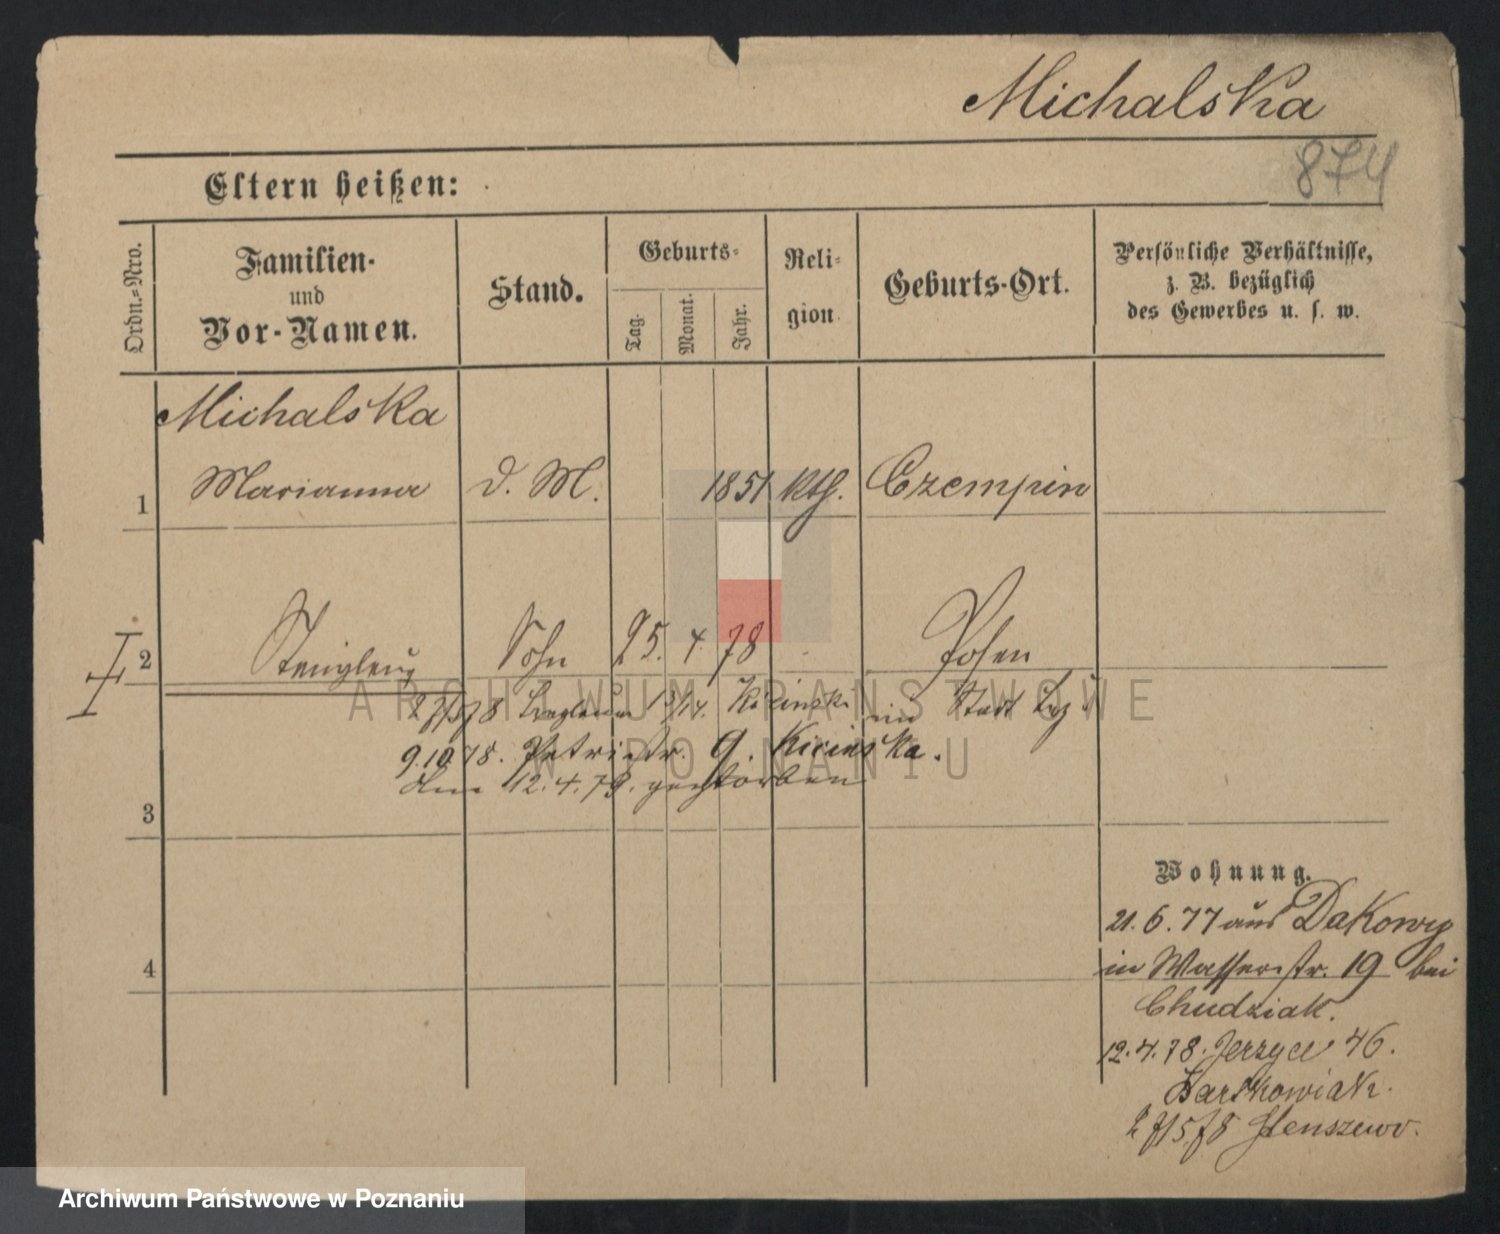 Michalska
874
Eltern heißen:
Ordn.-Nro.
Familien-
und
Vor-Namen.
Stand.
Geburts-
Tag.
Monat.
Jahr.
Reli-
gion
Geburts-Ort.
Persönliche Verhältnisse,
z. B. bezüglich
des Gewerbes u. s. w.
Michalska
1 Marianna d. M. 1851 kth. Czempin
2 Sohn 25. 4. 78 Posen
Kicinski im Stadt
9.10.78. Petristr. 9. Kicinska.
den 12.4.79. gestorben
3
4
Wohnung.
21.6.77 aus Dakowy
in Wasserstr. 19 bei
Chudziak.
12.4.78. Jerzyce 46.
Bartkowiak.
27/5.78 Stenszewo.
ARCHIWUM PAŃSTWOWE
W POZNANIU
Archiwum Państwowe w Poznaniu